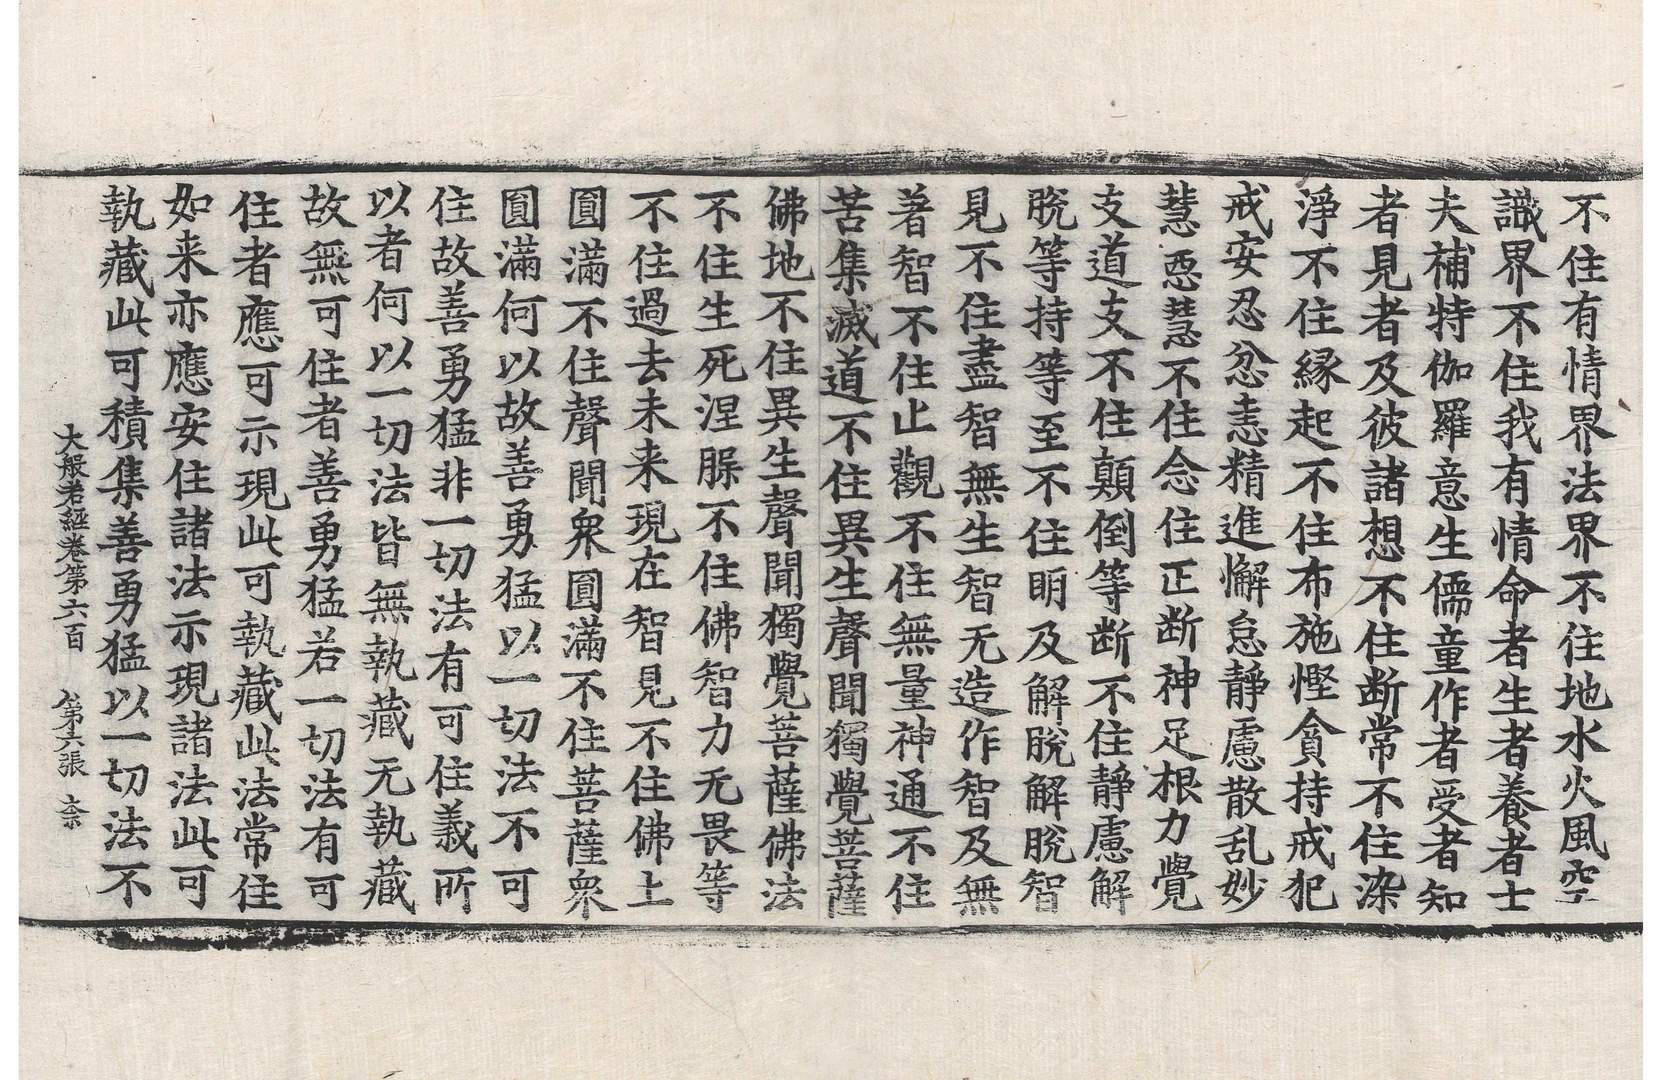 不住有情界法界不住地水火風空
識界不住我有情命者生者養者士
夫補特伽羅意生儒童作者受者知
者見者及彼諸想不住断常不住染
淨不住縁起不住布施慳貪持戒犯
戒安忍忿恚精進懈怠靜慮散乱妙
慧惡慧不住念住正断神足根力覺
支道支不住顛倒等断不住靜慮解
脫等持等至不住明及解脫解脫智
見不住盡智無生智无造作智及無
著智不住止觀不住無量神通不住
苦集滅道不住異生聲聞獨覺菩薩
佛地不住異生聲聞獨覺菩薩佛法
不住生死涅脲不住佛智力无畏等
不住過去未来現在智見不住佛土
圓滿不住聲聞衆圓滿不住菩薩衆
圓滿何以故善勇猛以一切法不可
住故善勇猛非一切法有可住義所
以者何以一切法皆無執藏无執藏
故無可住者善勇猛若一切法有可
住者應可示現此可執藏此法常住
如来亦應安住諸法示現諸法此可
執藏此可積集善勇猛以一切法不
大般若經卷第六百 第六張 柰